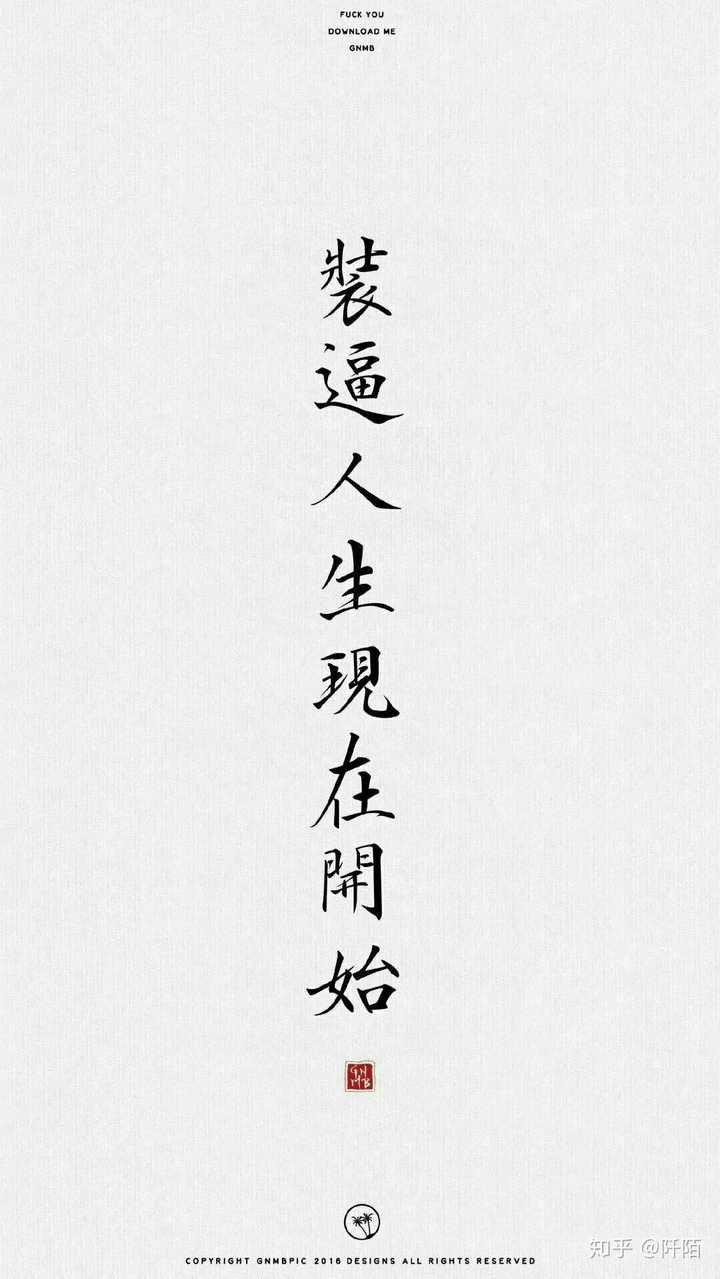 FUCK YOU
DOWNLOAD ME
GNMB
裝逼人生現在開始
GN
MB
COPYRIGHT GNMBPIC 2016 DESIGNS ALL RIGHTS RESERVED
知乎 @阡陌